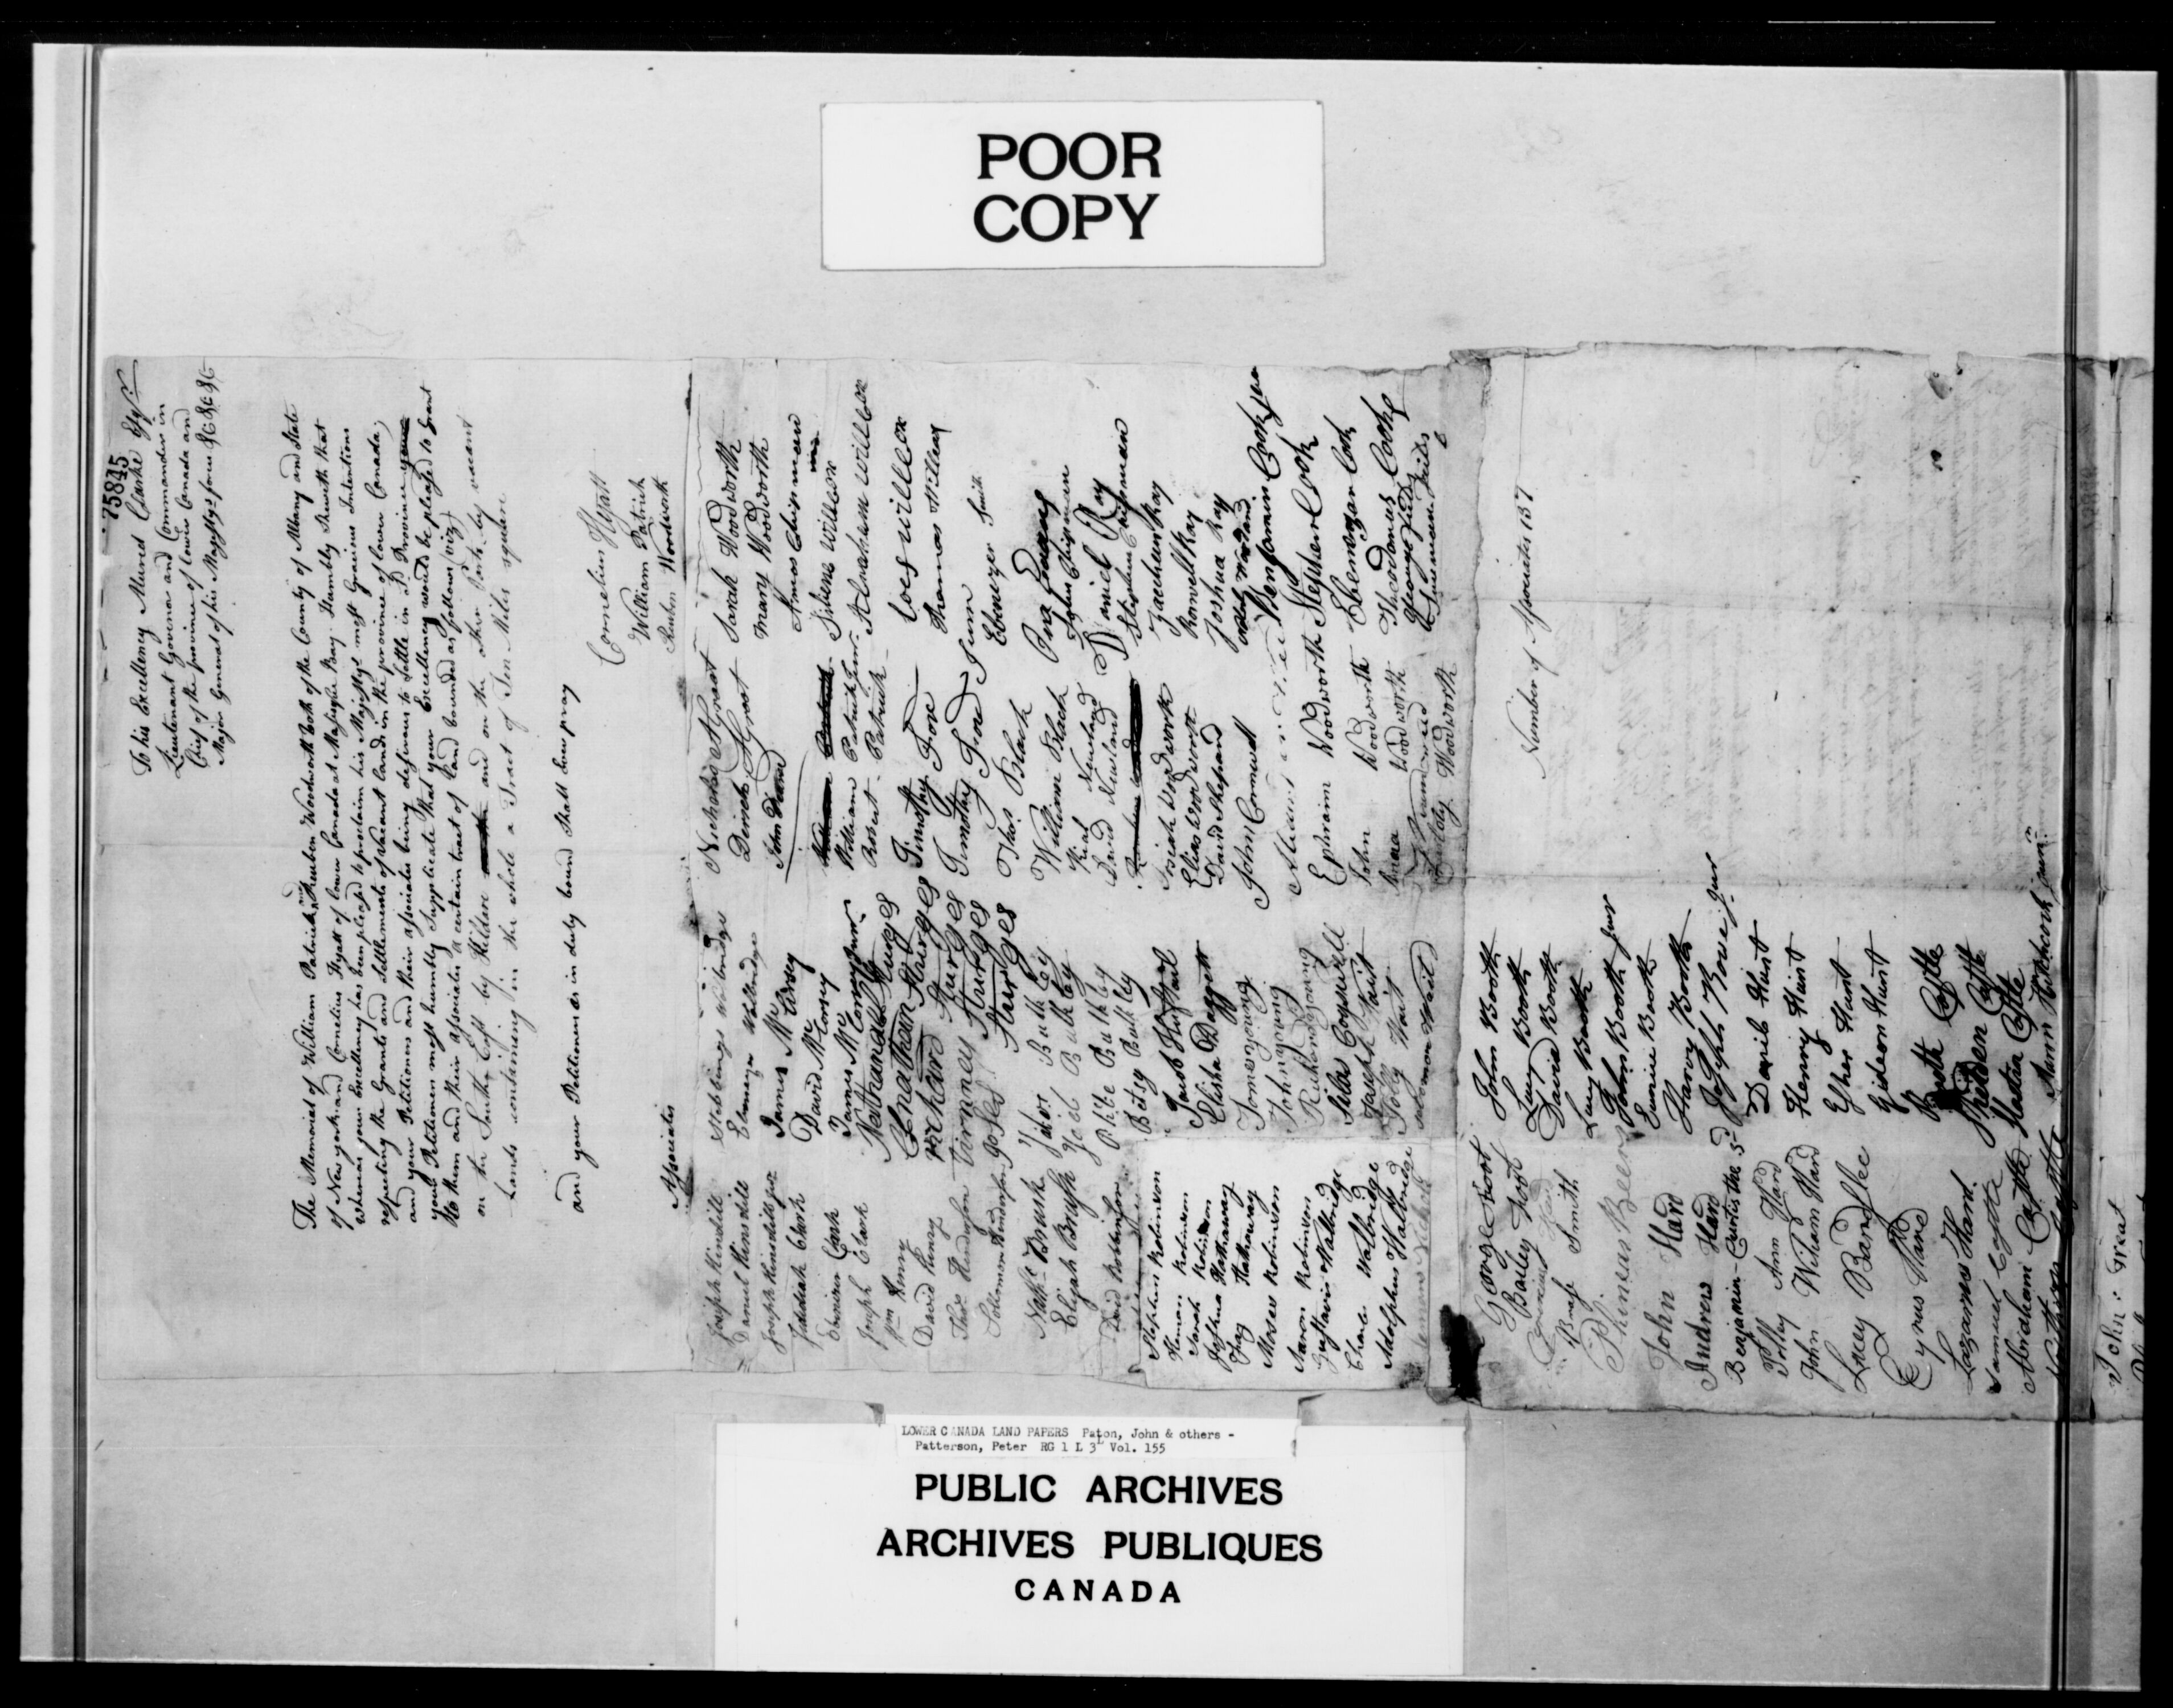 POOR
COPY
75845
To his Excellency Alured Clarke Esqr.
Lieutenant Governor and Commander in
Chief of the province of lower Canada and
Major General of his Majestys forces &c &c &c
The Memorial of William Patrick and Reuben Woodworth both of the County of Albany and State
of New york and Cornelius Hyatt of lower Canada at Missisque Bay Humbly Sheweth that
whereas your Excellency has been pleased to proclaim his Majestys most Gracious Intentions
respecting the Grants and Settlements of vacant lands in the province of lower Canada;
and your Petitioners and their associates being desirous to settle in sd. Province
your Petitioners most humbly Supplicate that your Excellency would be pleased to grant
to them and their associates a certain tract of land bounded as follows (viz)
on the South East by Kildare and on the other Parts by vacant
Lands containing in the whole a Tract of Ten Miles square
and your Petitioners as in duty bound Shall Ever pray
Cornelius Hyatt
William Patrick
Reuben Woodworth
Associates
Joseph Hinsdill
Daniel Hinsdill
Joseph Hinsdill jur
Jedidiah Clark
Ebenezer Clark
Joseph Clark
Wm Henry
David Henry
Thos. Henderson
Sollomon Henderson
Nathl. Brush
Elijah Brush
David Robbinson
Stephen Robinson
Heman Robinson
Sarah Robinson
Joshua Hathaway
Hathaway
Moses Robinson
Aaron Robinson
Gustavus Walbridge
Charles Walbridge
Adolphus Walbridge
Stebbings Walbridge
Ebenezer Walbridge
James McCorsey
David McCorsey
James McCorsey Junr.
Nathanael Sturges
Elnathan Sturges
Sturges
Sturges
Sturges
Bulkley
Joel Bulkley
Olive Bulkley
Betsy Bulkley
Jacob Huffnail
Elisha Daggett
Jomeryoung
John young
Richard young
Silas Cogswill
Joseph Wait
Wait
Solomon Wait
Nicholas Hyatt
Derick Hyatt
John Dean
William Patrick Junr.
Robert Patrick
Timothy Fox
Timothy Fox
Thos. Black
William Black
Newland
David Newland
Josiah Woodworth
Elias Woodworth
David Shepard
John Cornwell
Ephraim Woodworth
John Woodworth
Woodworth
Woodworth
Sarah Woodworth
Mary Woodworth
Amos Chipman
Willcox
Abraham Willcox
Loes Willcox
Thomas Willcox
Ebenezer Smith
Chipman
Daniel Ray
Stephen Chipman
Zacheus Ray
Roswell Ray
Joshua Ray
Benjamin Cook Jun
Stephen Cook
Ebenezer Cook
Theodorus Cook
George
Number of Associates 137
George Foot
Bailey Foot
Smith
Phineas Beers
John Hard
Andrew Hard
Benjamin Curtis the 3d
Polley Ann Hard
John William Hard
Lucy Bardslee
Cyrus Hard
Lazarus Hard
Samuel Castle
Abraham Castle
Nathan Castle
John Booth
Lucy Booth
David Booth
Lucy Booth
John Booth Jur
Eunice Booth
Harvy Booth
Joseph Rowe Jur
Daniel Hurt
Henry Hurt
Esther Hurt
Gideon Hurt
Seth Castle
Shelden Castle
Castle
Aaron
John Great
LOWER CANADA LAND PAPERS Paton, John & others -
Patterson, Peter RG 1 L 3L Vol. 155
PUBLIC ARCHIVES
ARCHIVES PUBLIQUES
CANADA